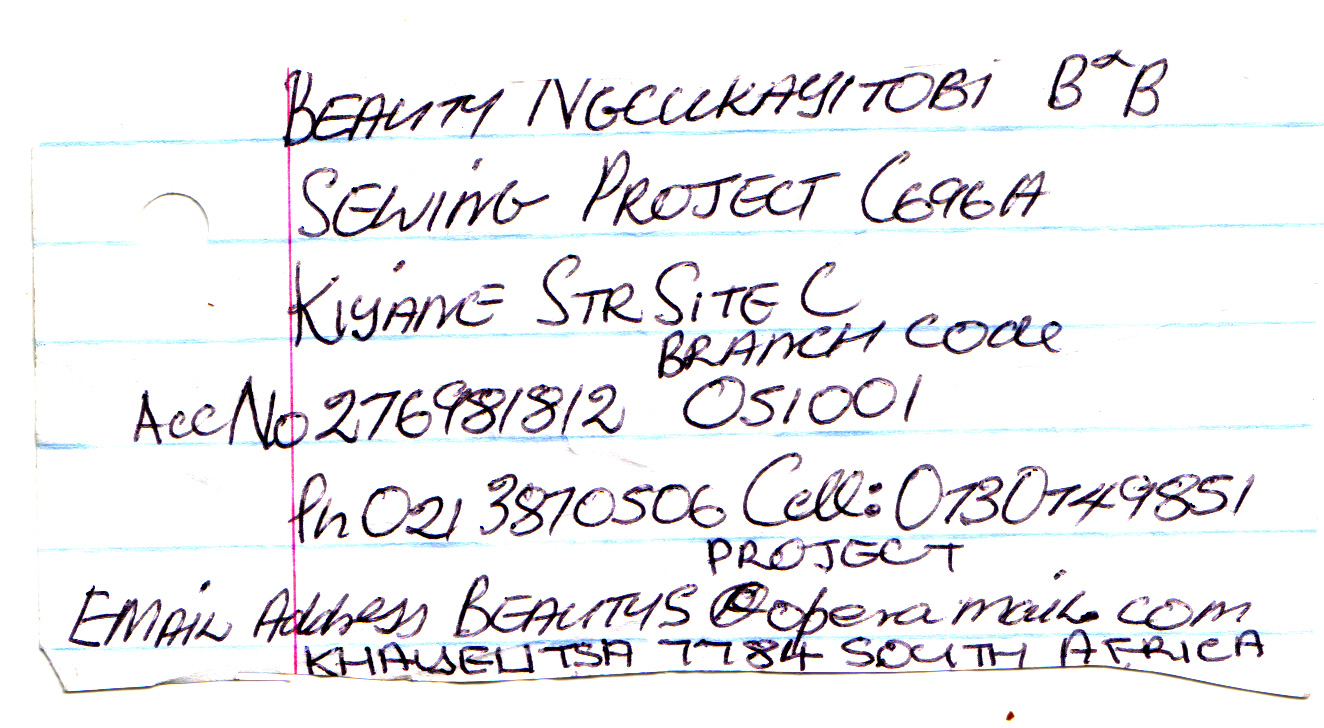 BEAUTY NGCUKAYITOBI B&B
SEWING PROJECT C696A
KIYANE STR SITE C
BRANCH CODE
Acc No 276981812 051001
Ph 021 3870506 Cell: 0730749851
PROJECT
EMAIL Address BEAUTYS @operamail.com
KHAYELITSA 7784 SOUTH AFRICA